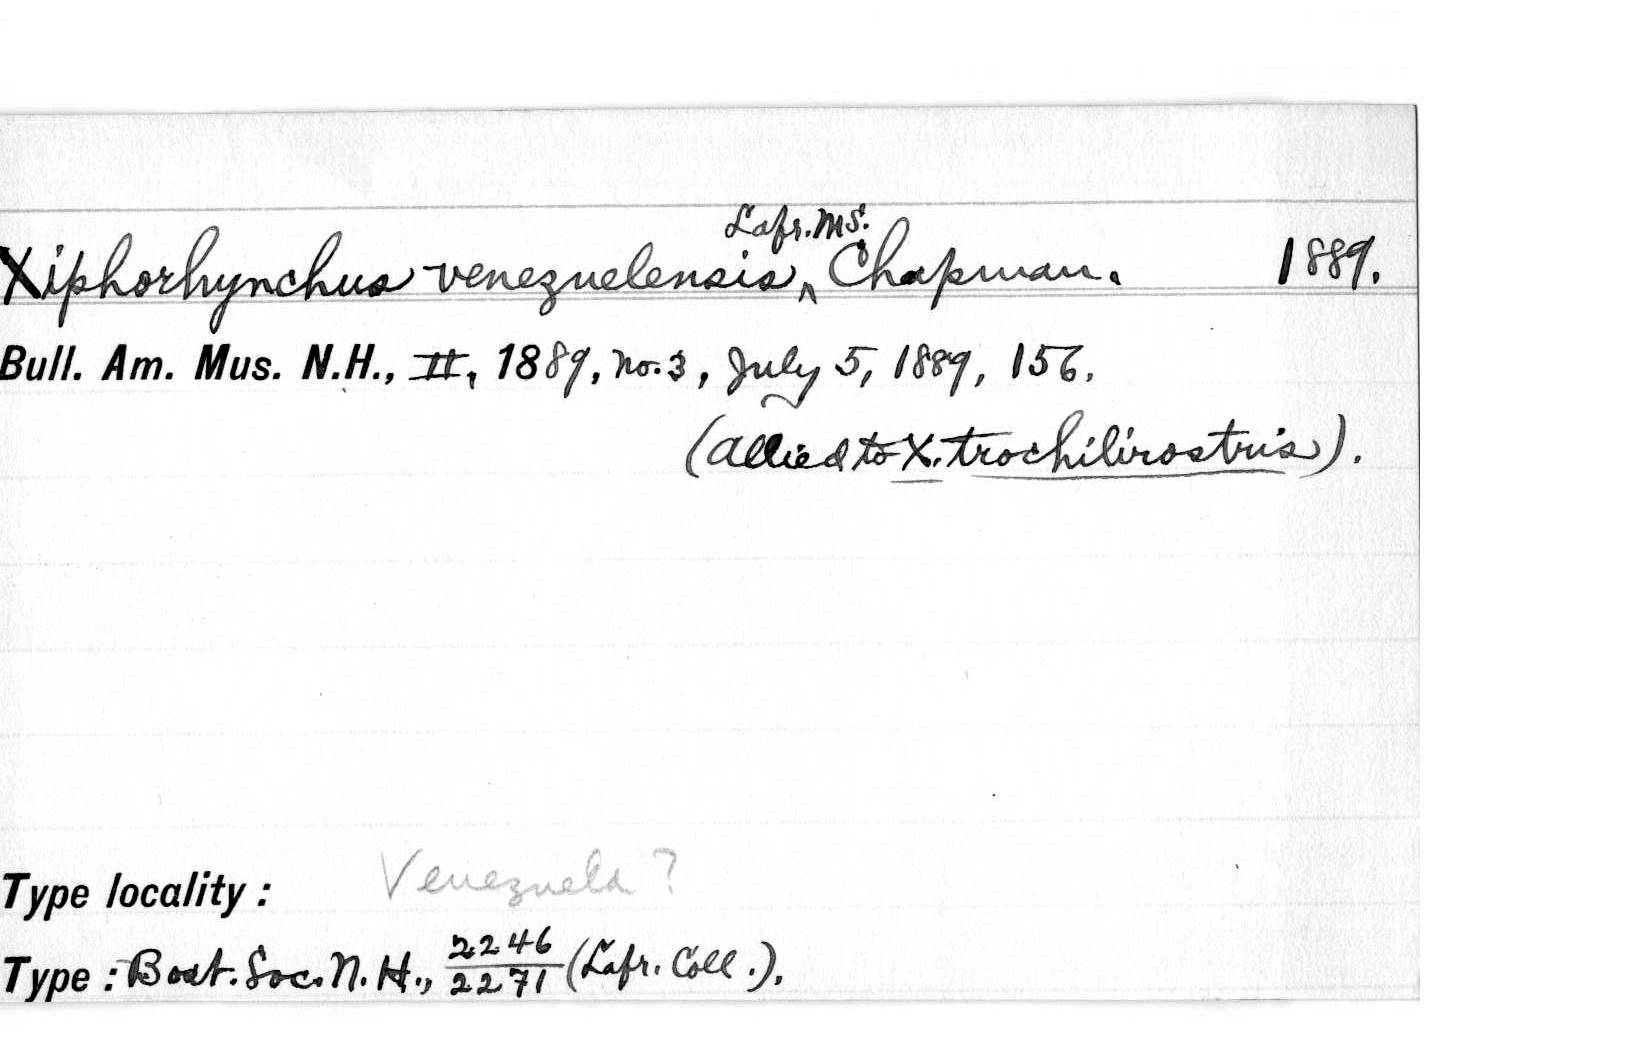 Xiphorhynchus venezuelensis, Lafr. MS. Chapman. 1889.
Bull. Am. Mus. N.H., II, 1889, no. 3, July 5, 1889, 156.
(allied to X. trochilirostris).
Type locality: Venezuela?
Type: Bost. Soc. N. H., 2246/2271 (Lafr. Coll.).